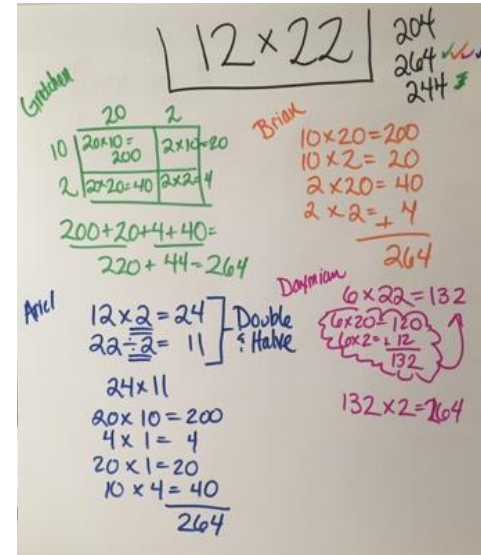 12 × 22
204
264 ✓✓✓
244
Gretchen
20 2
10 20×10=200 2×10=20
2 2×20=40 2×2=4
200+20+4+40=
220+44=264
Brian
10×20=200
10×2= 20
2×20= 40
2×2=+ 4
264
Ariel
12×2=24
22÷2= 11
Double & Halve
24×11
20×10=200
4×1= 4
20×1=20
10×4=40
264
6×22=132
6×20=120
6×2=+12
132
132×2=264